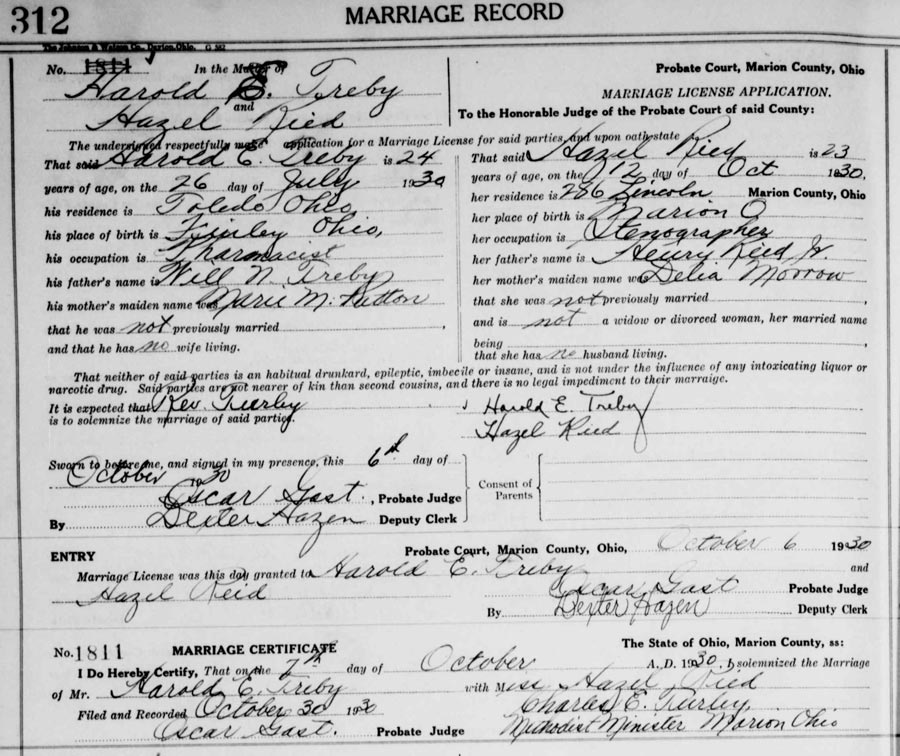 312
MARRIAGE RECORD
The Johnson & Watson Co., Dayton, Ohio. G 582
No. 1811 In the Matter of
Harold E. Treby
and
Hazel Ried
Probate Court, Marion County, Ohio
MARRIAGE LICENSE APPLICATION.
To the Honorable Judge of the Probate Court of said County:
The undersigned respectfully make application for a Marriage License for said parties, and upon oath state
That said Harold E. Treby is 24
years of age, on the 26 day of July 1930
his residence is Toledo Ohio
his place of birth is Finley Ohio,
his occupation is Pharmacist
his father's name is Will N. Treby
his mother's maiden name was Marie M.
that he was not previously married
and that he has no wife living.
That said Hazel Ried is 23
years of age, on the 12 day of Oct 1930,
her residence is 286 Lincoln Marion County, Ohio
her place of birth is Marion O
her occupation is Stenographer
her father's name is Henry Ried Jr.
her mother's maiden name was Delia Morrow
that she was not previously married
and is not a widow or divorced woman, her married name
being
that she has no husband living.
That neither of said parties is an habitual drunkard, epileptic, imbecile or insane, and is not under the influence of any intoxicating liquor or
narcotic drug. Said parties are not nearer of kin than second cousins, and there is no legal impediment to their marraige.
It is expected that Rev. Turley
is to solemnize the marriage of said parties.
Harold E. Treby
Hazel Ried
Sworn to before me, and signed in my presence, this 6th day of
October 1930
Oscar Gast, Probate Judge
By Dexter Hazen Deputy Clerk
Consent of
Parents
ENTRY
Probate Court, Marion County, Ohio, October 6 1930
Marriage License was this day granted to Harold E. Treby and
Hazel Reid
Oscar Gast Probate Judge
By Dexter Hazen Deputy Clerk
No. 1811 MARRIAGE CERTIFICATE
The State of Ohio, Marion County, ss:
I Do Hereby Certify, That on the 7th day of October A. D. 1930, I solemnized the Marriage
of Mr. Harold E. Treby with Miss Hazel Ried
Filed and Recorded October 30 1930
Charles E. Turley
Oscar Gast. Probate Judge
Methodist Minister Marion Ohio